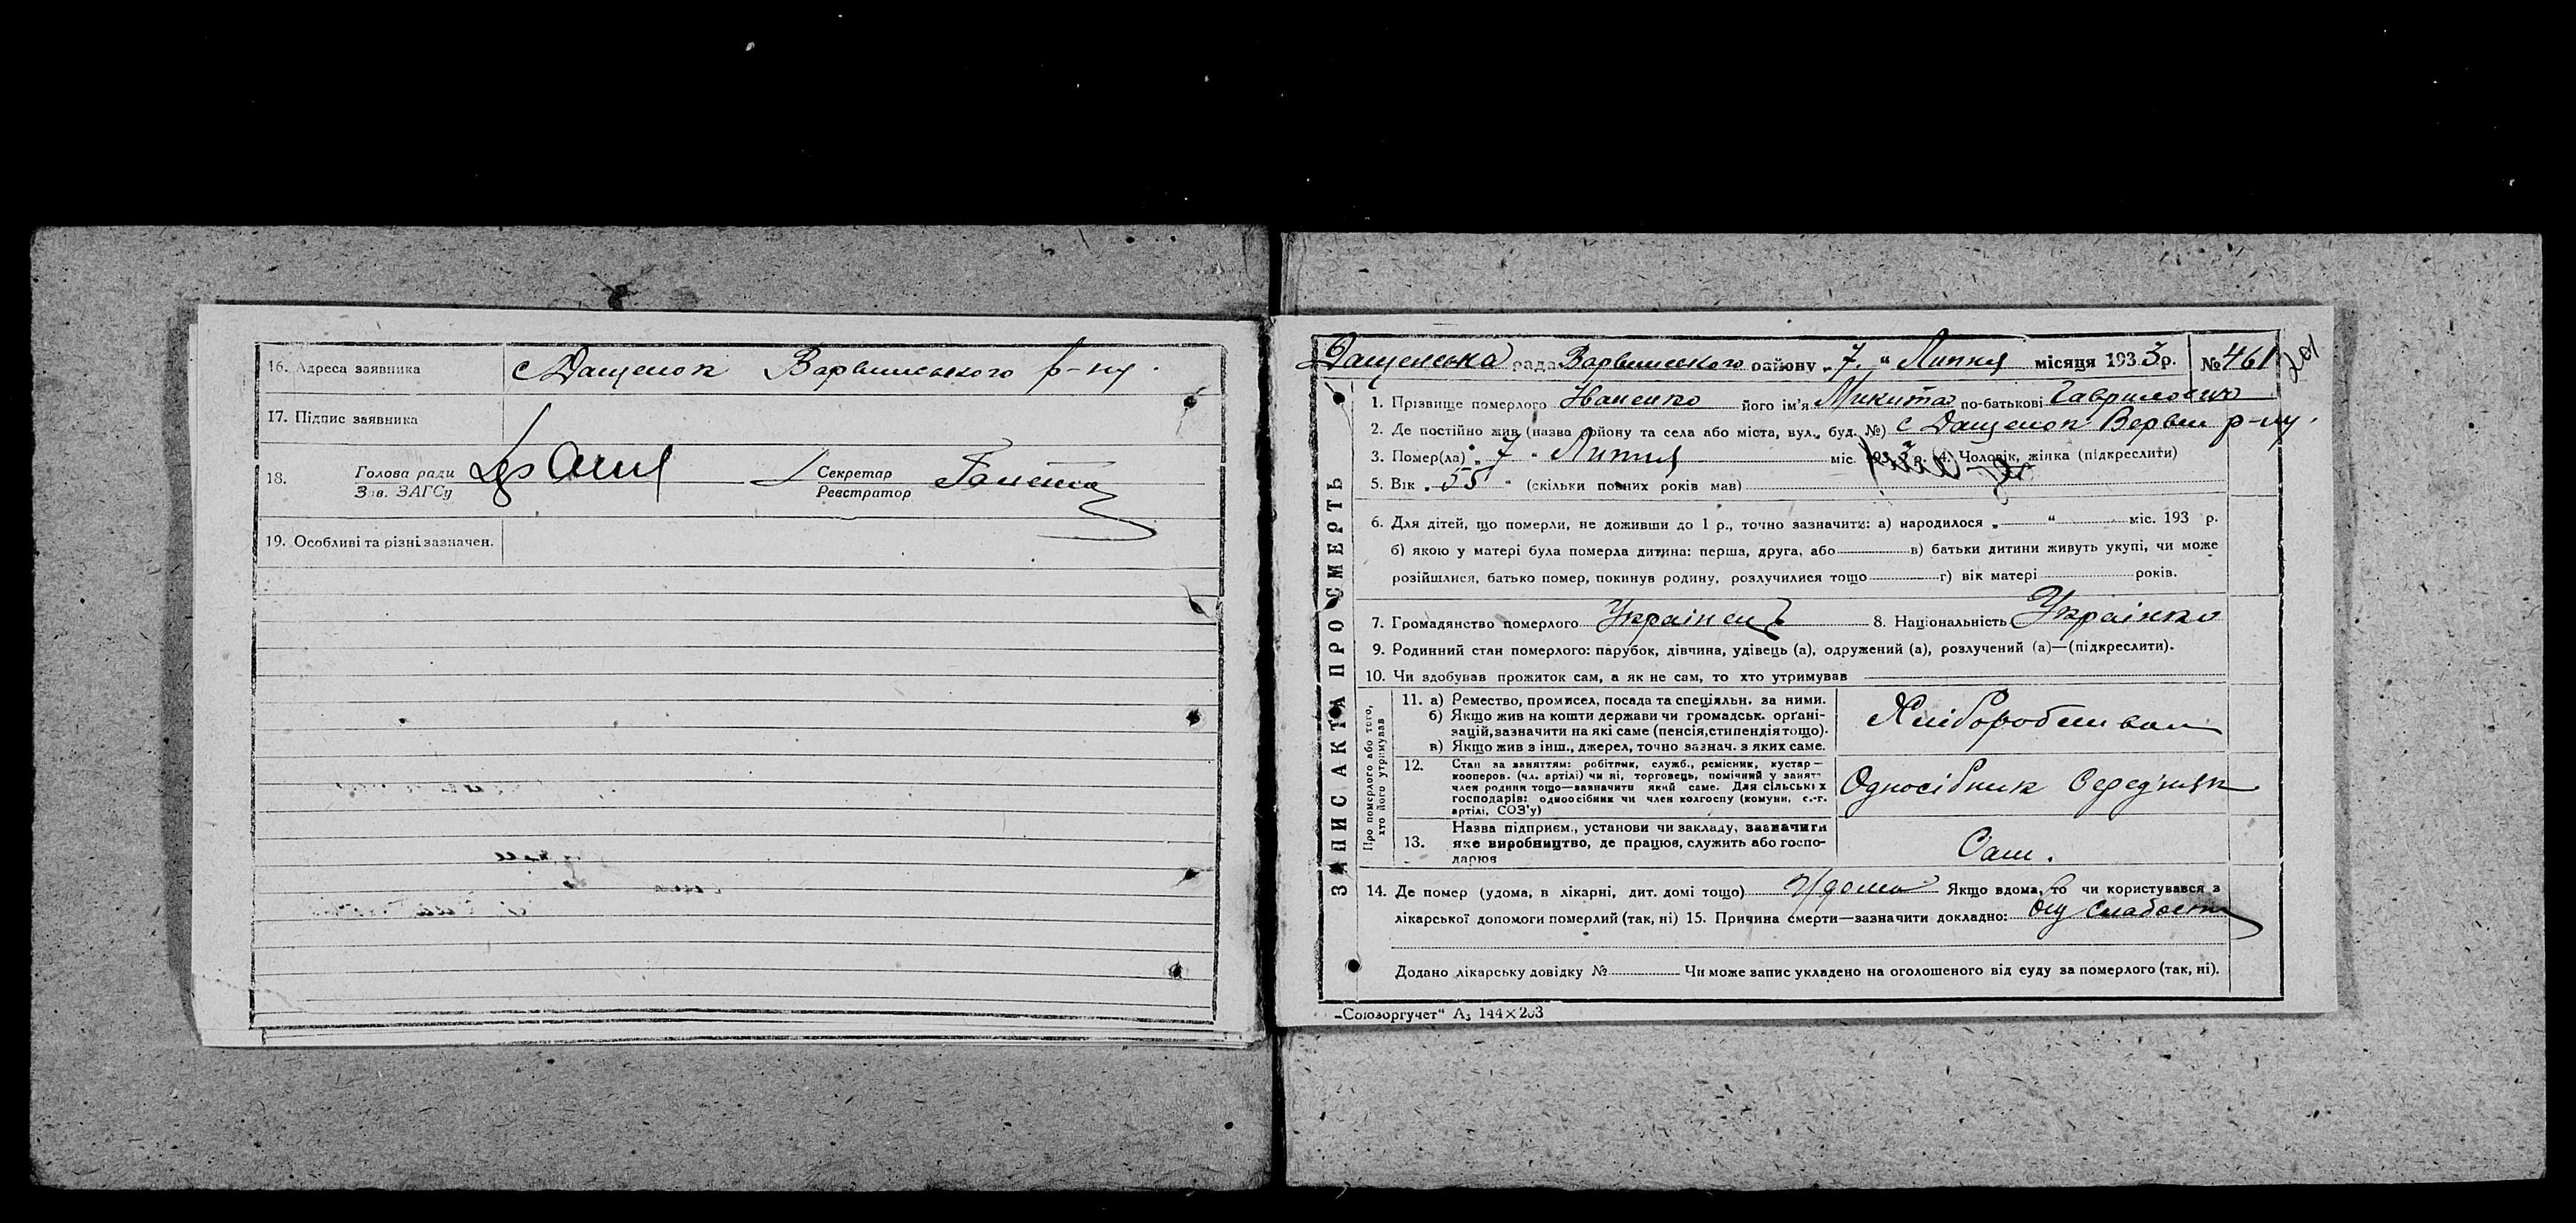 16. Адреса заявника с Дащенок Варвинського р-ну.
17. Підпис заявника
18. Голова ради
Зав. ЗАГСу
Секретар
Реєстратор
19. Особливі та різні зазначен.
Дащенська рада Варвинського району „7." Липня місяця 1933 р. № 461
201
ЗАПИС АКТА ПРО СМЕРТЬ
1. Прізвище померлого його ім'я Микита по-батькові Гаврилович
2. Де постійно жив (назва району та села або міста, вул., буд. №) с Дащенок Варвин р-ну.
3. Помер(ла) „7" Липня міс. 193 р. 4. Чоловік, жінка (підкреслити)
5. Вік „55" (скільки повних років мав)
6. Для дітей, що померли, не доживши до 1 р., точно зазначити: а) народилося „ " міс. 193 р.
б) якою у матері була померла дитина: перша, друга, або в) батьки дитини живуть укупі, чи може
розійшлися, батько помер, покинув родину, розлучилися тощо г) вік матері років.
7. Громадянство померлого Українець 8. Національність Українко
9. Родинний стан померлого: парубок, дівчина, удівець (а), одружений (а), розлучений (а)—(підкреслити).
10. Чи здобував прожиток сам, а як не сам, то хто утримував
Про померлого або того,
хто його утримував
11. а) Ремество, промисел, посада та спеціяльн. за ними.
б) Якщо жив на кошти держави чи громадськ. орґані-
зацій, зазначити на які саме (пенсія, стипендія тощо).
в) Якщо жив з інш., джерел, точно зазнач. з яких саме.
12. Стан за заняттям: робітник, служб., ремісник, кустар—
кооперов. (чл. артілі) чи ні, торговець, помічний у занят.
член родини тощо—зазначити який саме. Для сільських
господарів: одноосібник чи член колгоспу (комуни, с.-г.
артілі, СОЗ'у)
Односібник Середняк
13. Назва підприєм., установи чи закладу, зазначити
яке виробництво, де працює, служить або госпо-
дарює
Сам.
14. Де помер (удома, в лікарні, дит. домі тощо) Удома Якщо вдома, то чи користувався з
лікарської допомоги померлий (так, ні) 15. Причина смерти—зазначити докладно: від слабости
Додано лікарську довідку № Чи може запис укладено на оголошеного від суду за померлого (так, ні).
„Союзоргучет" А₅ 144×203